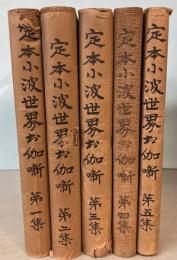 定本小波世界お伽噺 第一集
定本小波世界お伽噺 第二集
定本小波世界お伽噺 第三集
定本小波世界お伽噺 第四集
定本小波世界お伽噺 第五集